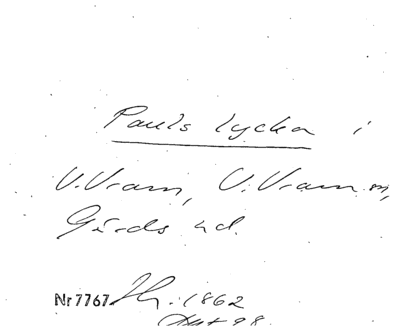 Pauls lycka i
V. Vram, V. Vram sn,
Gärds hd.
Nr 7767 1862